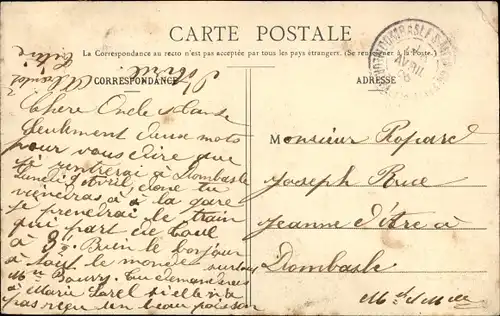 CARTE POSTALE
La Correspondance au recto n'est pas acceptée par tous les pays étrangers. (Se renseigner à la Poste.)
CORRESPONDANCE
ADRESSE
AVRIL
Chere Oncle
Seulement deux mots
pour vous dire que
je rentrerai à Dombasle
Lundi 9 Avril, donc tu
viendras à à la gare
je prenderai le train
qui part de Toul
à 8h. Bien le bonjour
à tout le monde surtout
Mr Bourry. Tu demanderas
à Marie Sorel si elle n'a
pas reçu un beau poisson
Monsieur
Joseph Rue
Jeanne d'Arc à
Dombasle